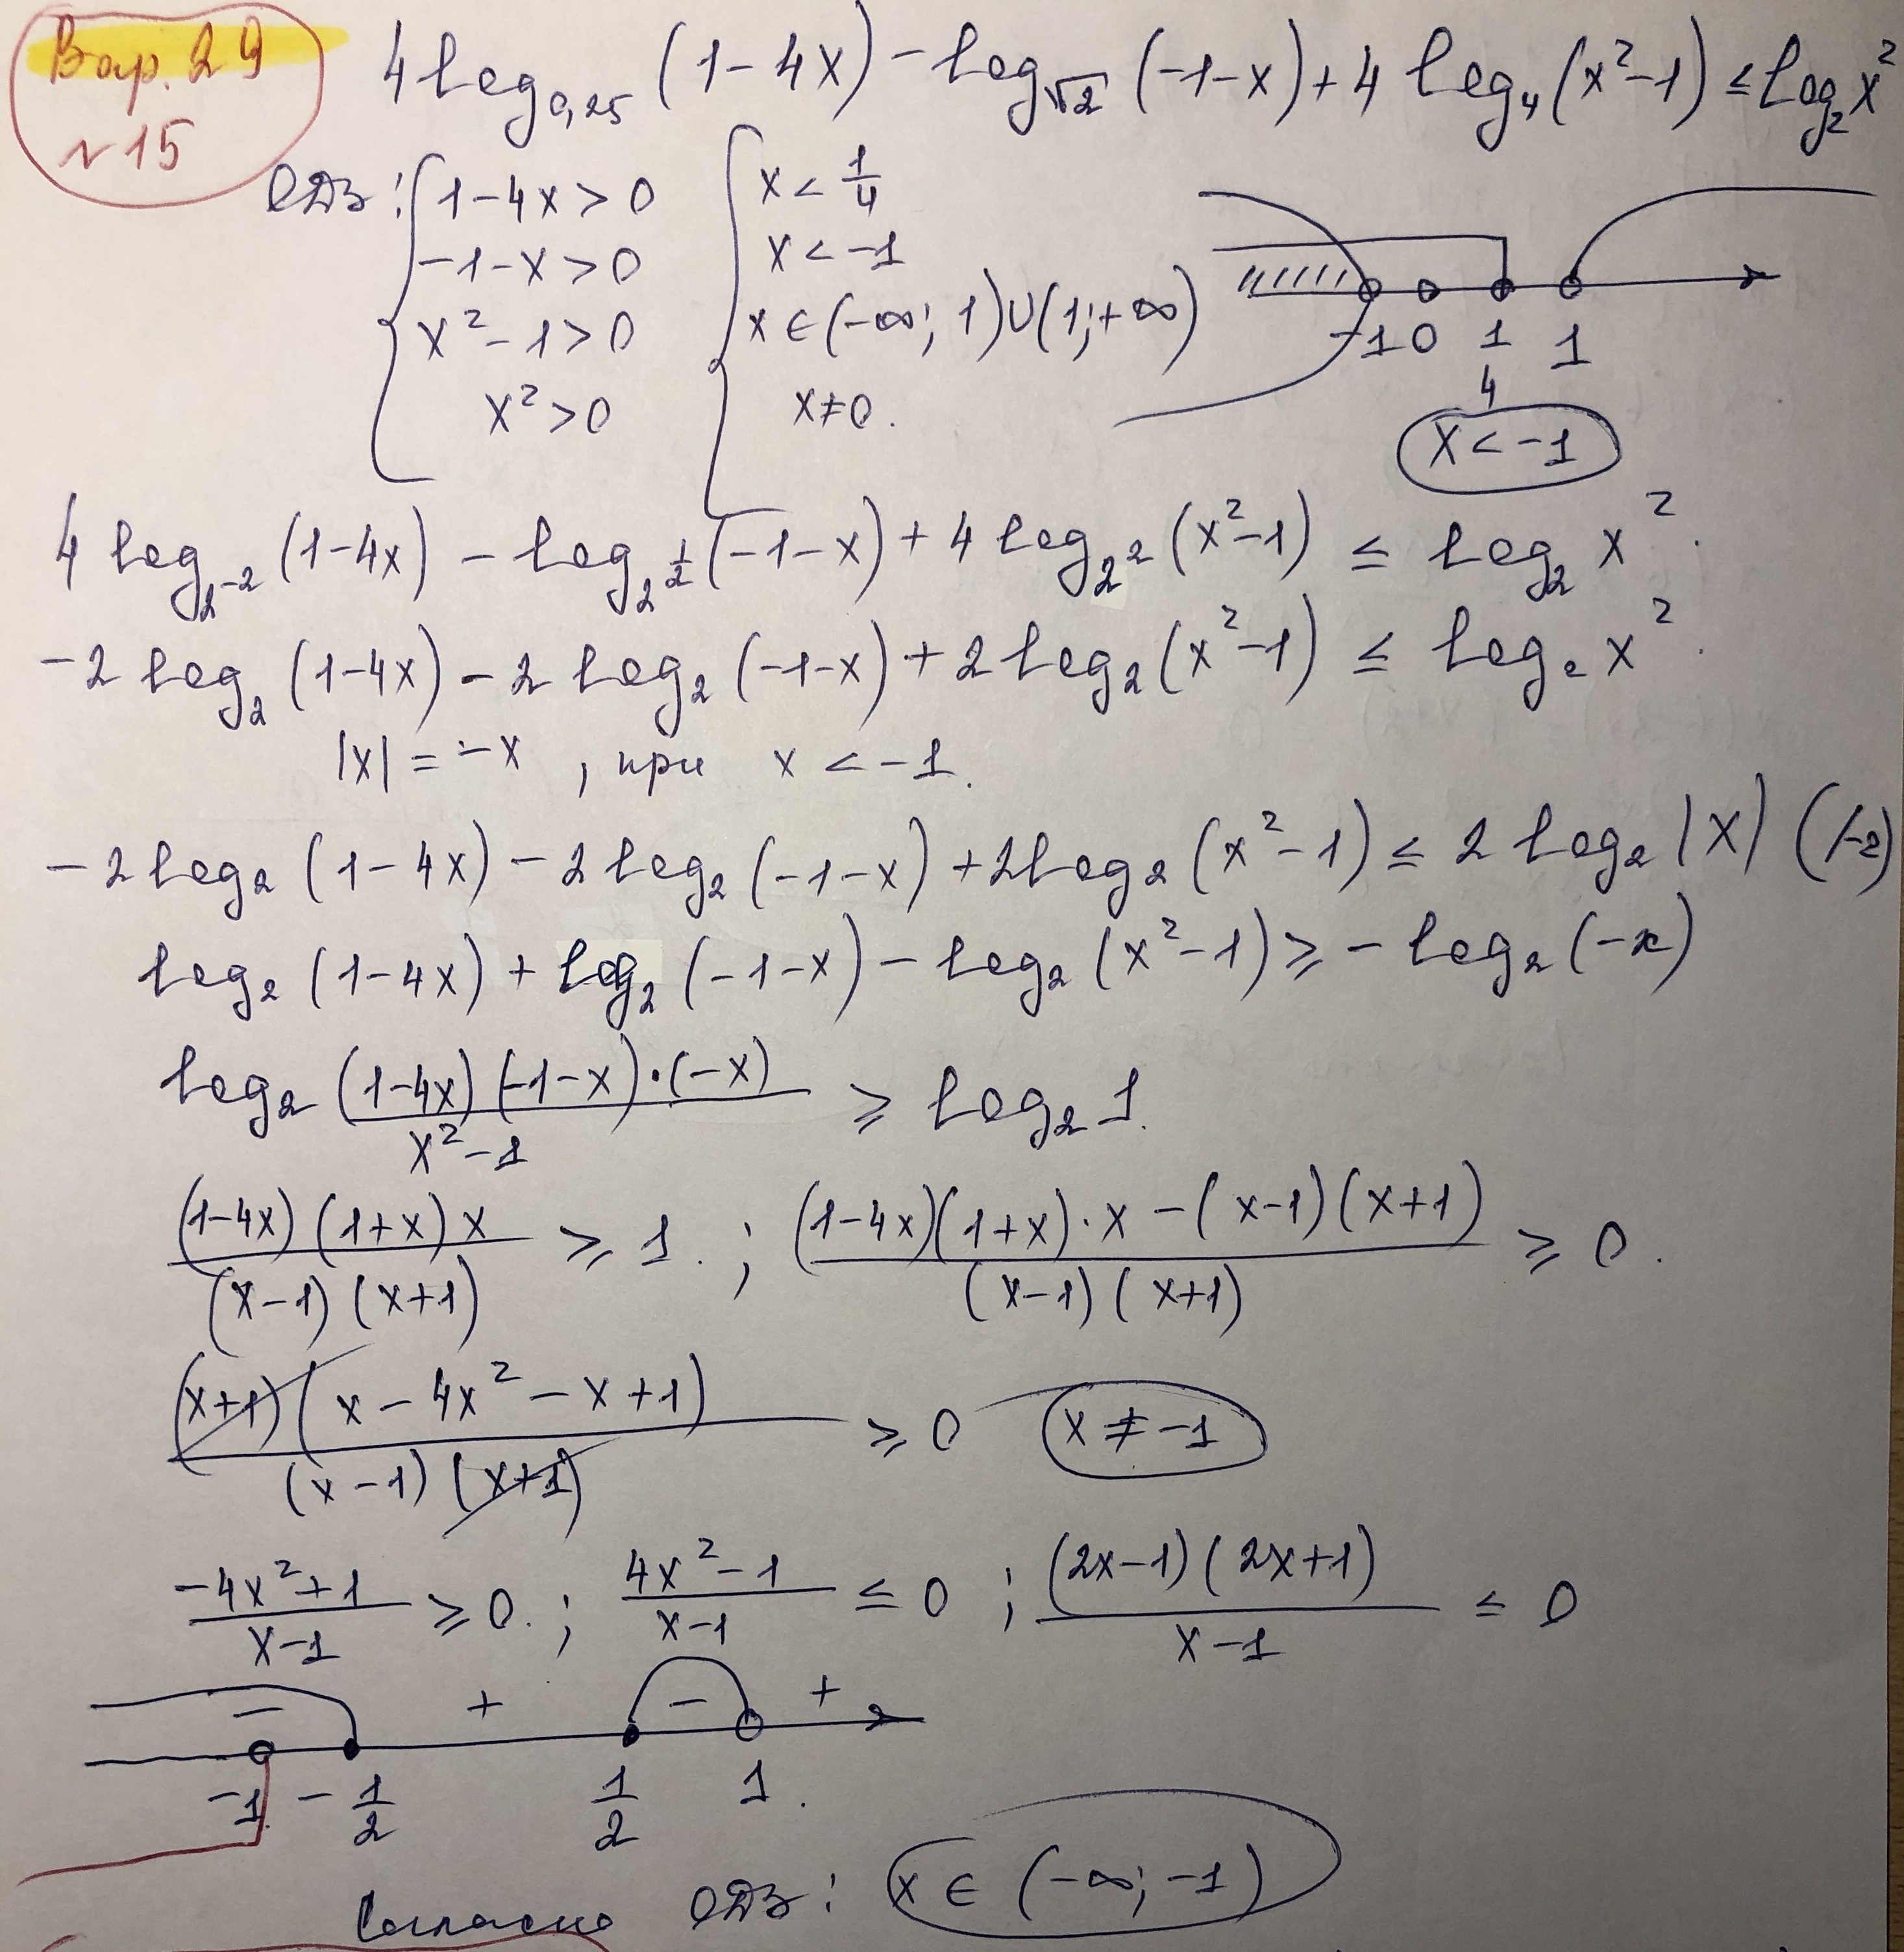 Вар. 29
№15
4 log₀,₂₅ (1-4x) - log_√2 (-1-x) + 4 log₄ (x²-1) ≤ log₂ x²
ОДЗ: { 1-4x > 0 { x < 1/4
-1-x > 0 x < -1
x²-1 > 0 x ∈ (-∞; 1) ∪ (1; +∞)
x² > 0 x ≠ 0.
-1 0 1/4 1
x < -1
4 log_{2^{-2}} (1-4x) - log_{2^{1/2}} (-1-x) + 4 log_{2^2} (x²-1) ≤ log₂ x².
-2 log₂ (1-4x) - 2 log₂ (-1-x) + 2 log₂ (x²-1) ≤ log₂ x².
|x| = -x, при x < -1.
-2 log₂ (1-4x) - 2 log₂ (-1-x) + 2 log₂ (x²-1) ≤ 2 log₂ |x| (/-2)
log₂ (1-4x) + log₂ (-1-x) - log₂ (x²-1) ≥ - log₂ (-x)
log₂ ((1-4x)(-1-x)·(-x))/(x²-1) ≥ log₂ 1.
((1-4x)(1+x)x)/((x-1)(x+1)) ≥ 1. ; ((1-4x)(1+x)·x - (x-1)(x+1))/((x-1)(x+1)) ≥ 0.
((x+1)(x-4x²-x+1))/((x-1)(x+1)) ≥ 0 x ≠ -1
(-4x²+1)/(x-1) ≥ 0. ; (4x²-1)/(x-1) ≤ 0 ; ((2x-1)(2x+1))/(x-1) ≤ 0
- + - +
-1 -1/2 1/2 1.
Согласно ОДЗ: x ∈ (-∞; -1)